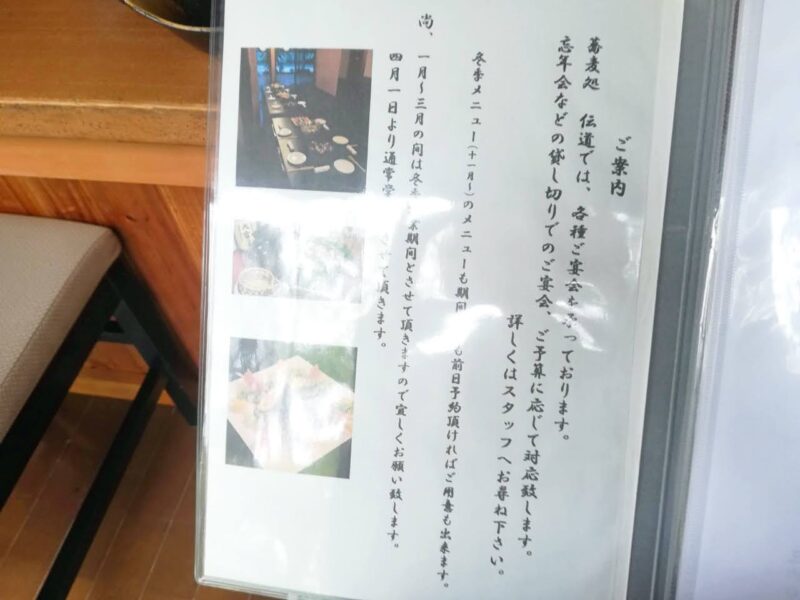 ご案内
蕎麦処 伝道では、各種ご宴会も
っております。
忘年会などの貸し切りでのご宴会、ご予算に応じて対応致します。
詳しくはスタッフへお尋ね下さい。
冬季メニュー(十一月〜)のメニューも期間 も前日予約頂ければご用意も出来ます。
尚、一月〜三月の間は冬季 業期間とさせて頂きますので宜しくお願い致します。
四月一日より通常営 せて頂きます。